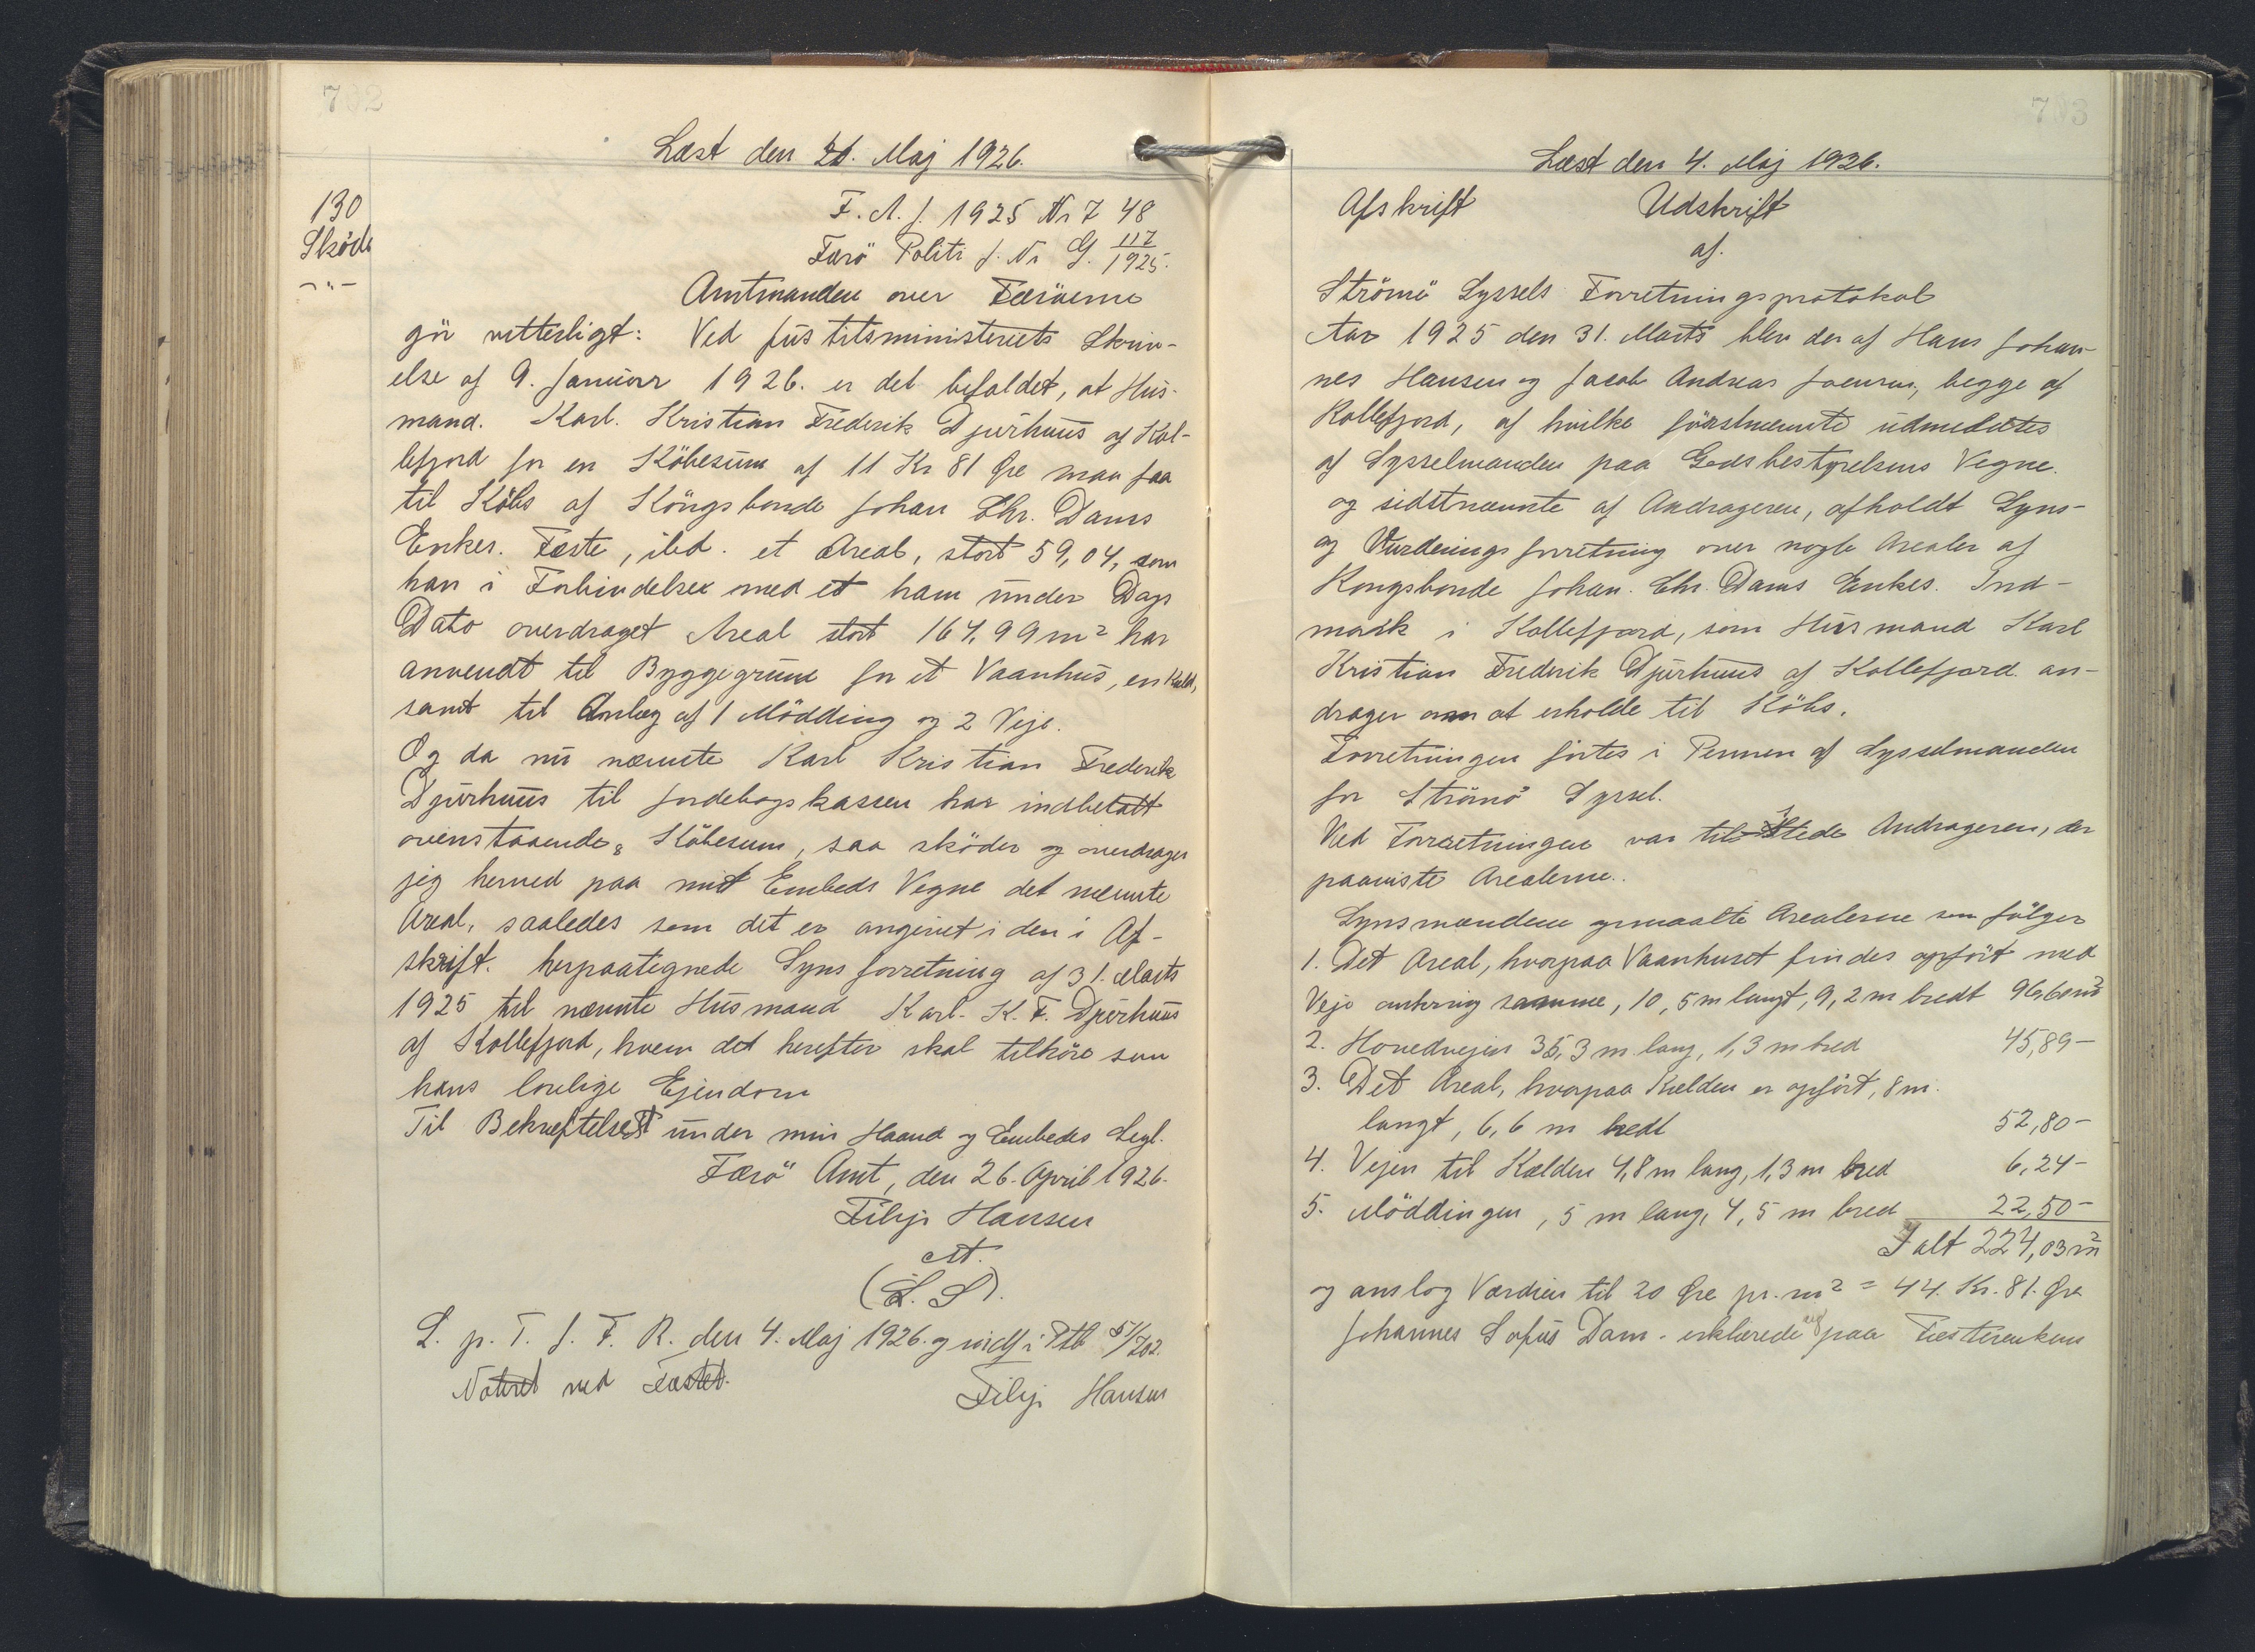 702
Læst den 21. Maj 1926.
130
Sköde
-"-
F. A. J. 1925 Nr 748
Færö Politi J. Nr G. 117/1925.
Amtmanden over Færöerne
gör vitterligt: Ved Justitsministeriets Skriv-
else af 9. Januar 1926. er det bifaldet, at Hus-
mand. Karl. Kristian Frederik Djurhuus af Kol-
lefjord for en Köbesum af 11 Kr 81 Øre maa faa
til Köbs af Kongsbonde Johan Chr. Dams
Enkes. Fæste, ibd. et Areal, stort 59,04, som
han i Forbindelse med et ham under Dags
Dato overdraget Areal stort 164,99 m² har
anvendt til Byggegrund for et Vaanhus, en Kæld,
samt til Anlæg af 1 Mödding og 2 Veje.
Og da nu nævnte Karl Kristian Frederik
Djurhuus til Jordebogskassen har indbetalt
ovenstaaende Köbesum, saa sköder og overdrager
jeg herved paa mit Embeds Vegne det nævnte
Areal, saaledes som det er angivet i den i Af-
skrift. herpaategnede Synsforretning af 31. Marts
1925 til nævnte Husmand Karl. K. F. Djurhuus
af Kollefjord, hvem det herefter skal tilhöre som
hans lovlige Ejendom
Til Bekræftelse under min Haand og Embeds Segl.
Færö Amt, den 26. April 1926.
Filip Hansen
cst.
(L. S).
L. p. T. f. F. R. den 4. Maj 1926. og indf i Ptb 51/702.
Noteret ved Fæstet.
Filip Hansen
703
Læst den 4. Maj 1926.
Afskrift Udskrift
af.
Strömö Syssels Forretningsprotokol
Aar 1925 den 31. Marts blev der af Hans Johan-
nes Hansen og Jacob Andreas Joensen, begge af
Kollefjord, af hvilke förstnævnte udmeldtes
af Sysselmanden paa Godsbestyrelsens Vegne.
og sidstnævnte af Andrageren, afholdt Syns-
og Vurderingsforretning over nogle Arealer af
Kongsbonde Johan. Chr. Dams Enkes. Ind-
mark i Kollefjord, som Husmand Karl
Kristian Frederik Djurhuus af Kollefjord. an-
drager om at erholde til Köbs.
Forretningen förtes i Pennen af Sysselmanden
for Strömö Syssel.
Ved Forretningen var tilstede Andrageren, der
paaviste Arealerne.
Synsmændene opmaalte Arealerne som fölger
1. Det Areal, hvorpaa Vaanhuset findes opfört med
Veje omkring samme, 10,5 m langt, 9,2 m bredt 96,60 m²
2. Hovedvejen 35,3 m lang, 1,3 m bred 45,89 -
3. Det Areal, hvorpaa Kælden er opfört, 8 m.
langt, 6,6 m bredt 52,80 -
4. Vejen til Kælden 4,8 m lang, 1,3 m bred 6,24 -
5. Möddingen, 5 m lang, 4,5 m bred 22,50 -
I alt 224,03 m²
og anslog Værdien til 20 Øre pr. m² = 44. Kr. 81. Øre
Johannes Sofus Dam. erklærede paa Fæsteenkens